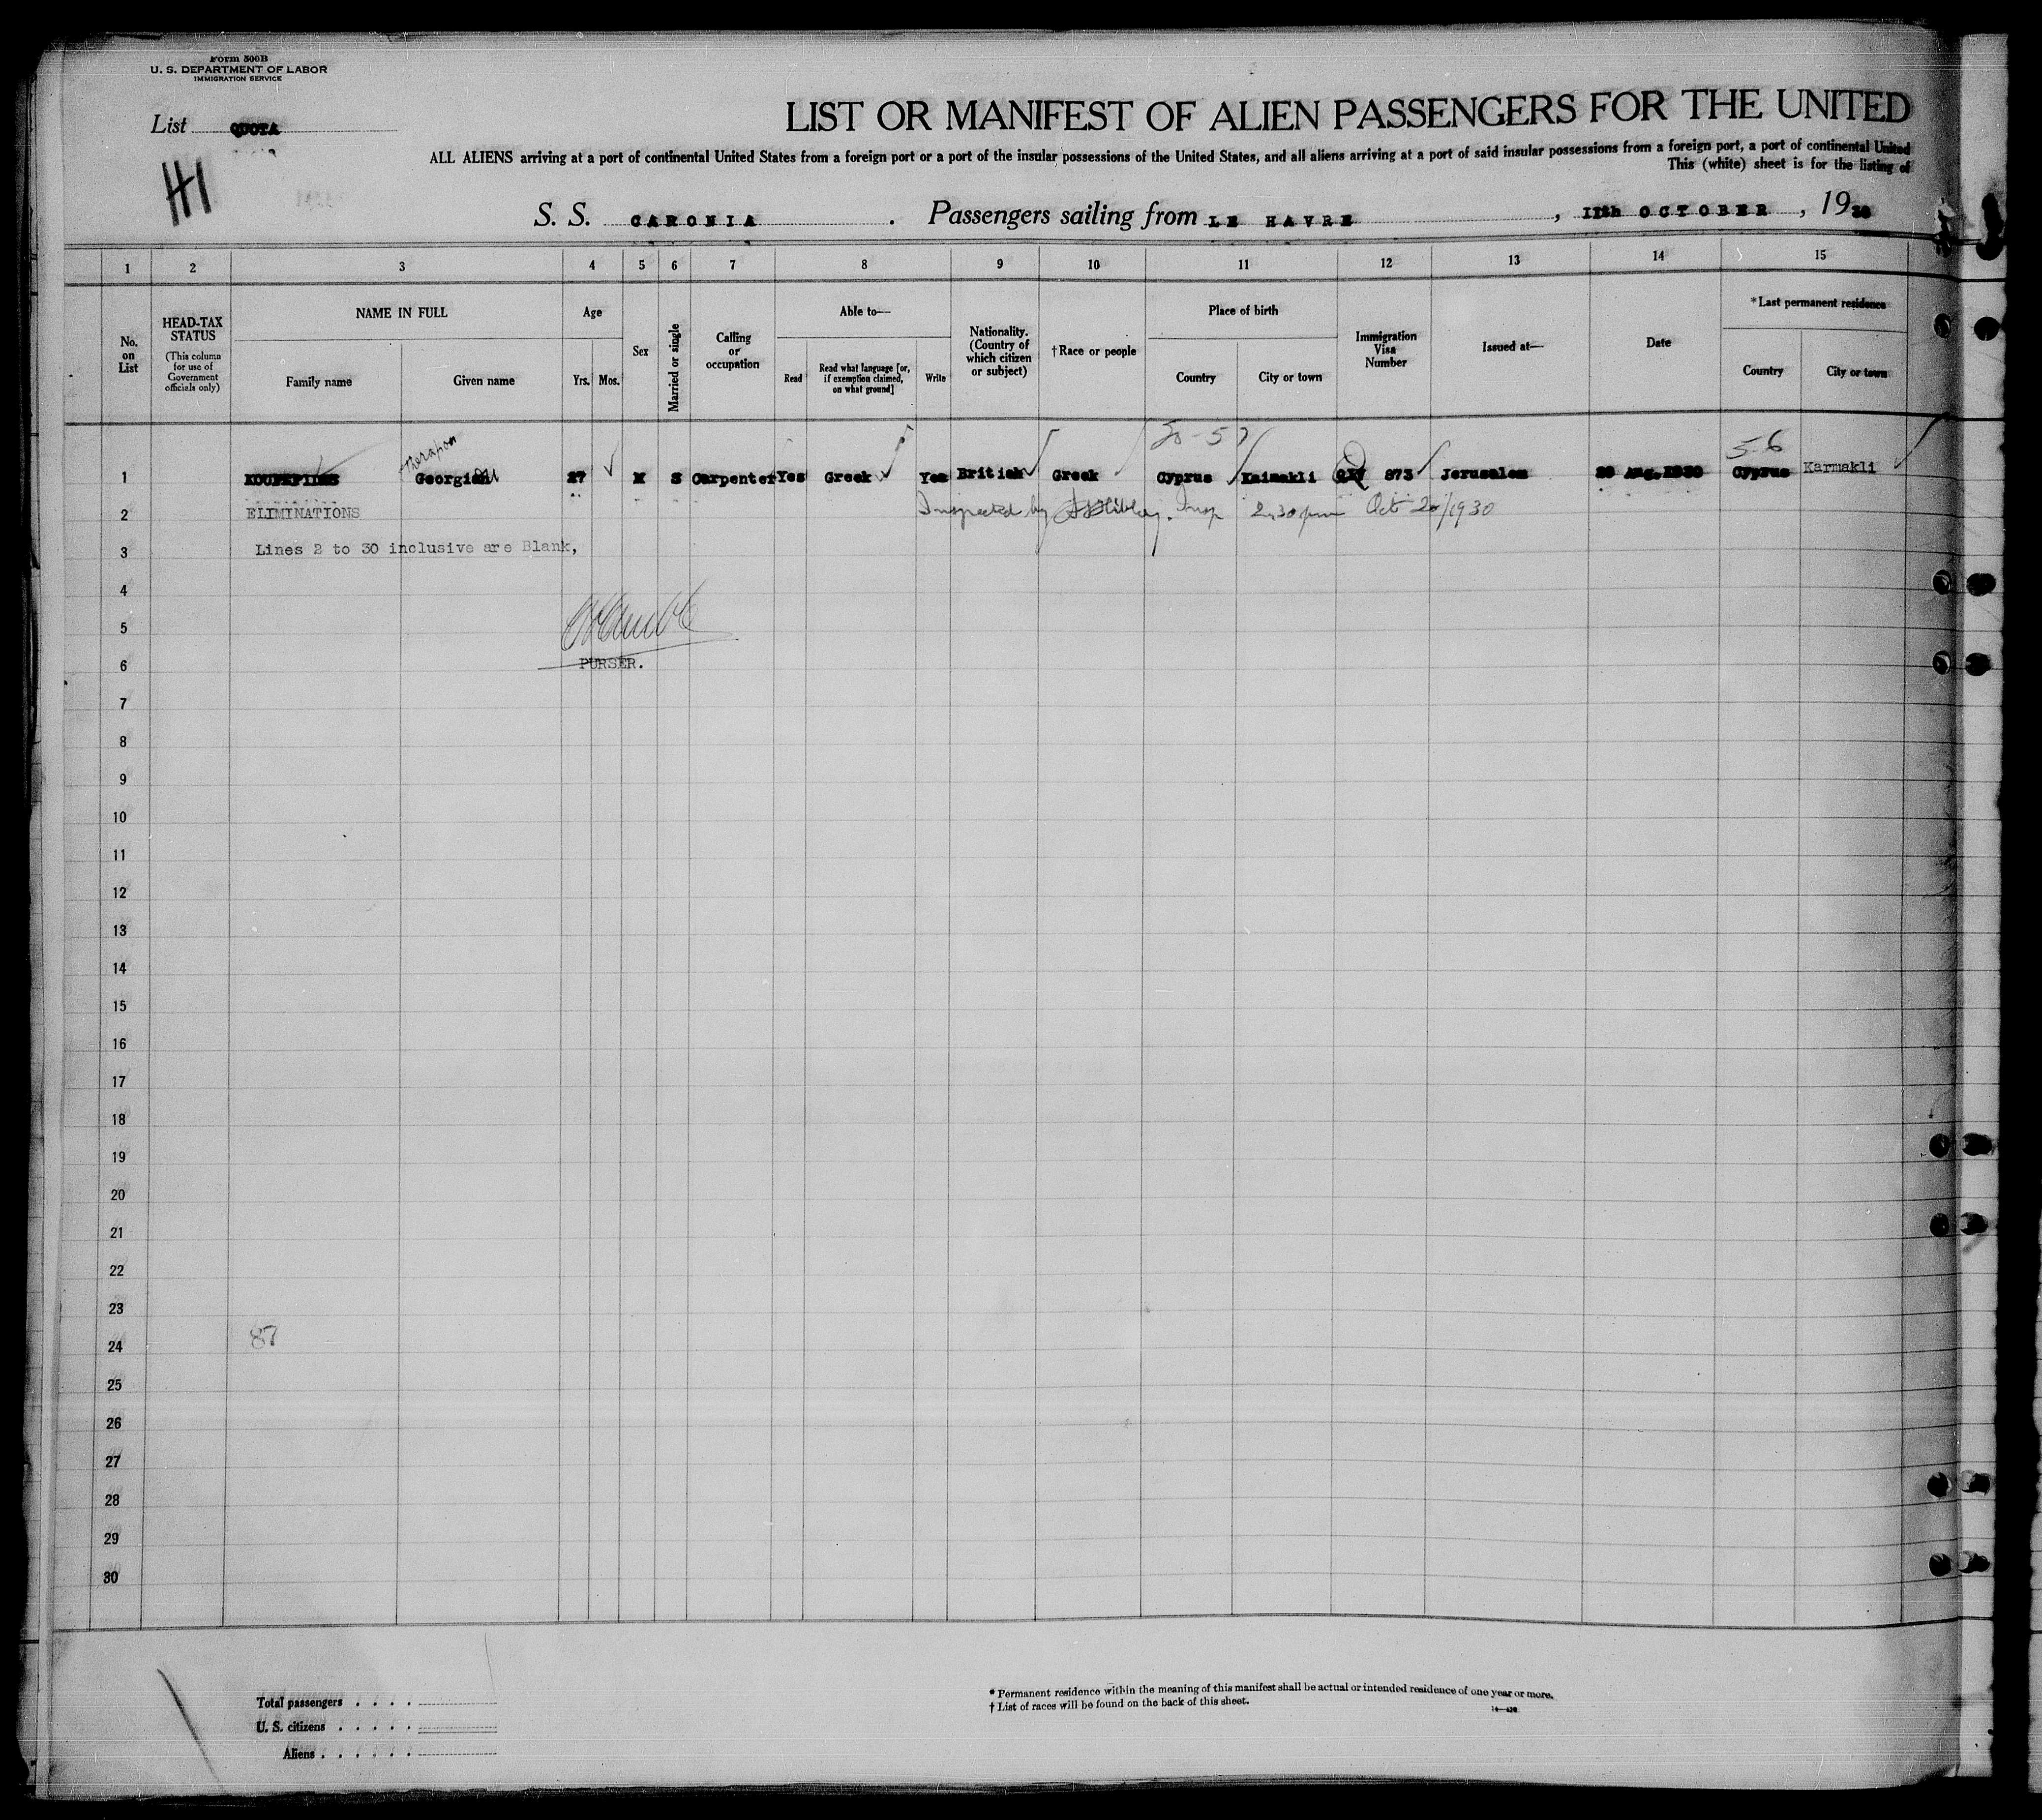 Form 500B
U. S. DEPARTMENT OF LABOR
IMMIGRATION SERVICE
List QUOTA
H1
LIST OR MANIFEST OF ALIEN PASSENGERS FOR THE UNITED
ALL ALIENS arriving at a port of continental United States from a foreign port or a port of the insular possessions of the United States, and all aliens arriving at a port of said insular possessions from a foreign port, a port of continental United
This (white) sheet is for the listing of
S. S. CARONIA . Passengers sailing from LE HAVRE , 11th OCTOBER , 1930
1 2 3 4 5 6 7 8 9 10 11 12 13 14 15
No. on List
HEAD-TAX STATUS (This column for use of Government officials only)
NAME IN FULL
Family name Given name
Age
Yrs. Mos.
Sex
Married or single
Calling or occupation
Able to—
Read Read what language [or, if exemption claimed, on what ground] Write
Nationality. (Country of which citizen or subject)
†Race or people
Place of birth
Country City or town
Immigration Visa Number
Issued at—
Date
*Last permanent residence
Country City or town
Therapon 30-57 56
1 Georgiou 27 M S Carpenter Yes Greek Yes British Greek Cyprus Kaimakli 873 Jerusalem 29 Aug. 1930 Cyprus Karmakli
2 ELIMINATIONS Inspected by Insp 2,30 pm Oct 20/1930
3 Lines 2 to 30 inclusive are Blank,
4
5
6 PURSER.
7
8
9
10
11
12
13
14
15
16
17
18
19
20
21
22
23
24 87
25
26
27
28
29
30
Total passengers . . . .
U. S. citizens . . . . .
Aliens . . . . . .
* Permanent residence within the meaning of this manifest shall be actual or intended residence of one year or more.
† List of races will be found on the back of this sheet.